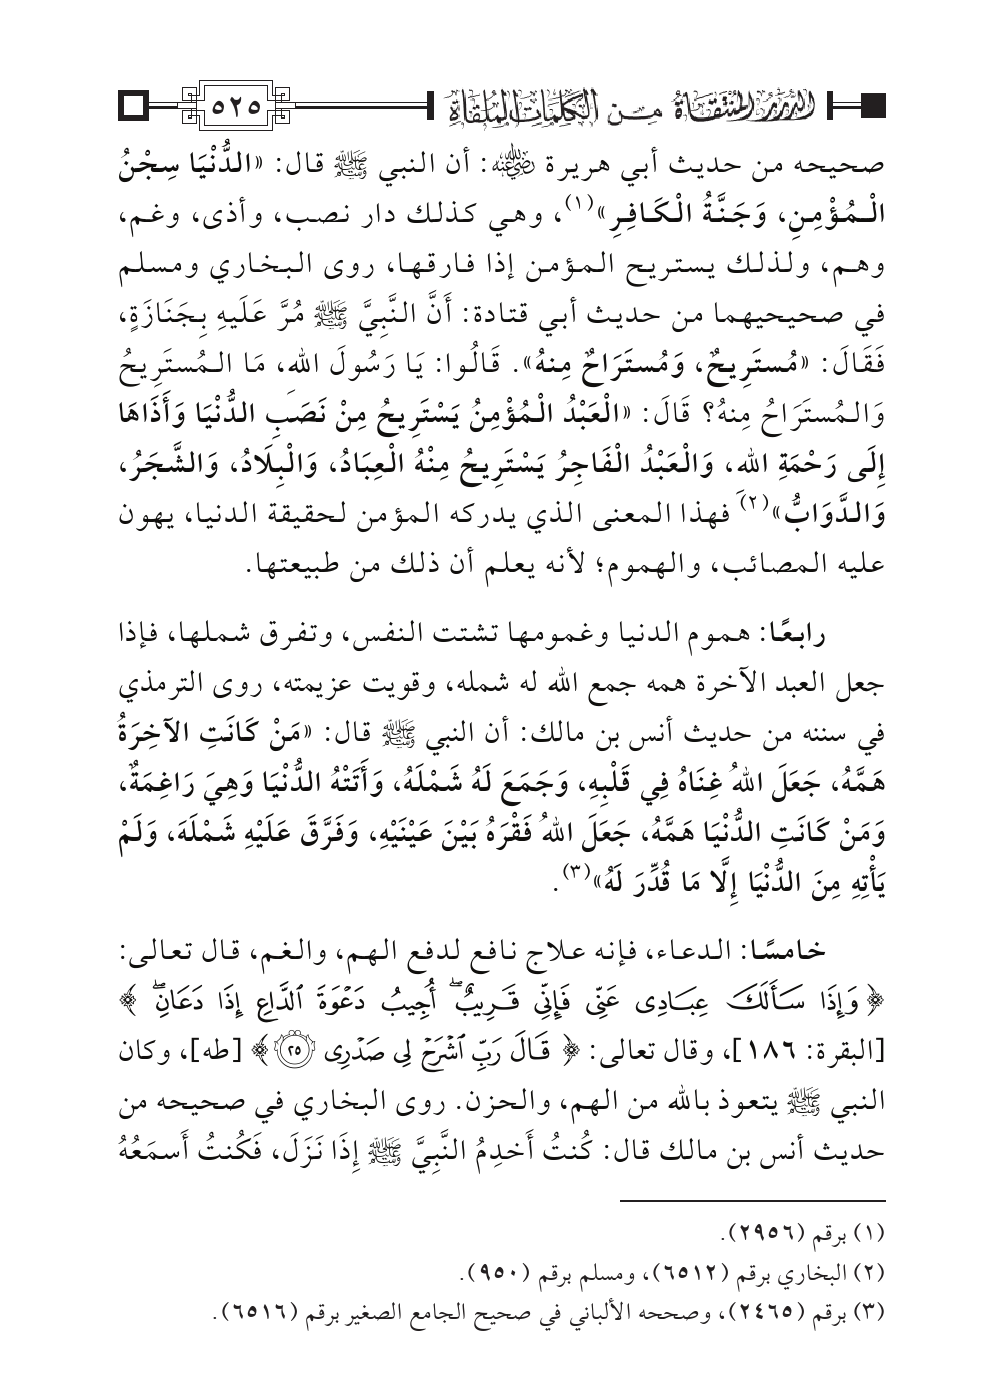 الدرر المنتقاة من الكلمات الملقاة ٥٢٥
صحيحه من حديث أبي هريرة رضي الله عنه: أن النبي ﷺ قال: «الدُّنْيَا سِجْنُ
الْمُؤْمِنِ، وَجَنَّةُ الْكَافِرِ»(١)، وهي كذلك دار نصب، وأذى، وغم،
وهم، ولذلك يستريح المؤمن إذا فارقها، روى البخاري ومسلم
في صحيحيهما من حديث أبي قتادة: أَنَّ النَّبِيَّ ﷺ مُرَّ عَلَيهِ بِجَنَازَةٍ،
فَقَالَ: «مُستَرِيحٌ، وَمُستَرَاحٌ مِنهُ». قَالُوا: يَا رَسُولَ اللهِ، مَا الـمُستَرِيحُ
وَالـمُستَرَاحُ مِنهُ؟ قَالَ: «الْعَبْدُ الْمُؤْمِنُ يَسْتَرِيحُ مِنْ نَصَبِ الدُّنْيَا وَأَذَاهَا
إِلَى رَحْمَةِ اللهِ، وَالْعَبْدُ الْفَاجِرُ يَسْتَرِيحُ مِنْهُ الْعِبَادُ، وَالْبِلَادُ، وَالشَّجَرُ،
وَالدَّوَابُّ»(٢) فهذا المعنى الذي يدركه المؤمن لحقيقة الدنيا، يهون
عليه المصائب، والهموم؛ لأنه يعلم أن ذلك من طبيعتها.
رابعًا: هموم الدنيا وغمومها تشتت النفس، وتفرق شملها، فإذا
جعل العبد الآخرة همه جمع الله له شمله، وقويت عزيمته، روى الترمذي
في سننه من حديث أنس بن مالك: أن النبي ﷺ قال: «مَنْ كَانَتِ الآخِرَةُ
هَمَّهُ، جَعَلَ اللهُ غِنَاهُ فِي قَلْبِهِ، وَجَمَعَ لَهُ شَمْلَهُ، وَأَتَتْهُ الدُّنْيَا وَهِيَ رَاغِمَةٌ،
وَمَنْ كَانَتِ الدُّنْيَا هَمَّهُ، جَعَلَ اللهُ فَقْرَهُ بَيْنَ عَيْنَيْهِ، وَفَرَّقَ عَلَيْهِ شَمْلَهَ، وَلَمْ
يَأْتِهِ مِنَ الدُّنْيَا إِلَّا مَا قُدِّرَ لَهُ»(٣).
خامسًا: الدعاء، فإنه علاج نافع لدفع الهم، والغم، قال تعالى:
﴿وَإِذَا سَأَلَكَ عِبَادِى عَنِّى فَإِنِّى قَرِيبٌ ۖ أُجِيبُ دَعْوَةَ ٱلدَّاعِ إِذَا دَعَانِ ۖ﴾
[البقرة: ١٨٦]، وقال تعالى: ﴿قَالَ رَبِّ ٱشْرَحْ لِى صَدْرِى ٢٥﴾ [طه]، وكان
النبي ﷺ يتعوذ بالله من الهم، والحزن. روى البخاري في صحيحه من
حديث أنس بن مالك قال: كُنتُ أَخدِمُ النَّبِيَّ ﷺ إِذَا نَزَلَ، فَكُنتُ أَسمَعُهُ
(١) برقم (٢٩٥٦).
(٢) البخاري برقم (٦٥١٢)، ومسلم برقم (٩٥٠).
(٣) برقم (٢٤٦٥)، وصححه الألباني في صحيح الجامع الصغير برقم (٦٥١٦).